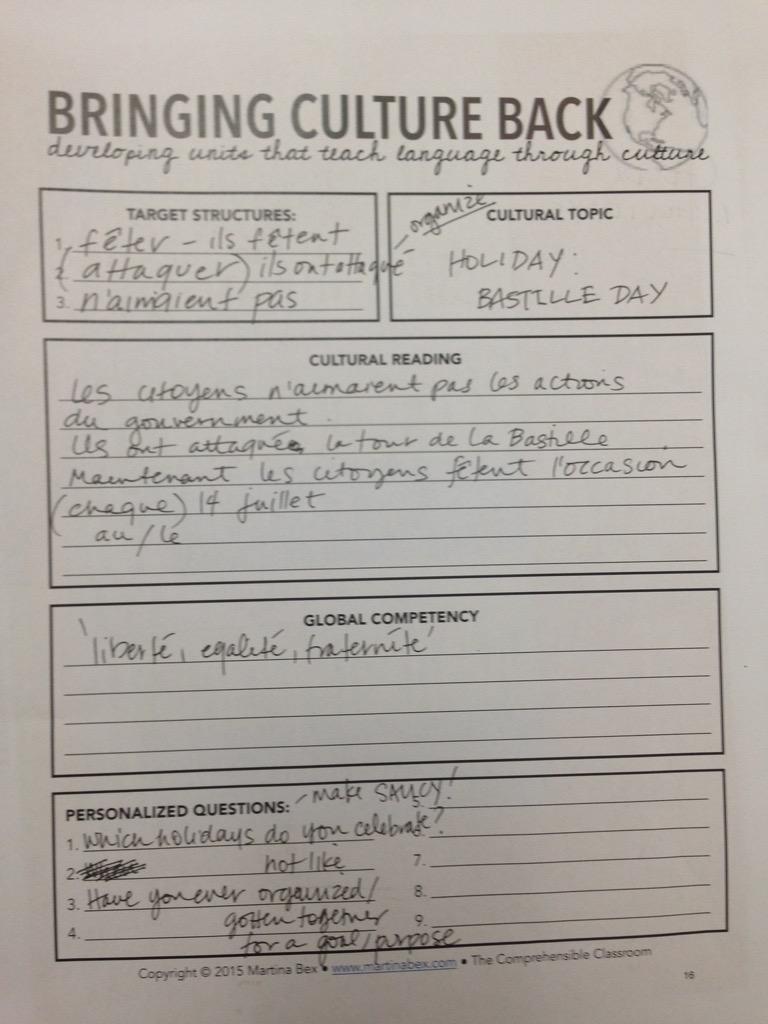 BRINGING CULTURE BACK
developing units that teach language through culture
TARGET STRUCTURES:
1. fêter - ils fêtent
2. (attaquer) ils ont attaqué
3. n'aimaient pas
organize
CULTURAL TOPIC
HOLIDAY:
BASTILLE DAY
CULTURAL READING
Les citoyens n'aimaient pas les actions
du gouvernment.
Ils ont attaqué la tour de la Bastille
Maintenant les citoyens fêtent l'occasion
(chaque) 14 juillet
au/le
GLOBAL COMPETENCY
'liberté, egalité, fraternité'
PERSONALIZED QUESTIONS: - make SAUCY!
1. Which holidays do you celebrate?
2. not like
3. Have you ever organized/
4. gotten together
for a goal/purpose
5.
7.
8.
9.
Copyright © 2015 Martina Bex • www.martinabex.com • The Comprehensible Classroom
16